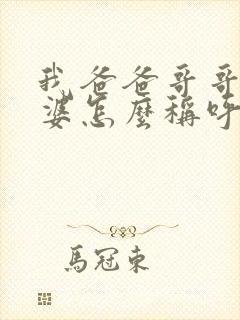 我爸爸哥哥
婆怎麼稱呼
馬冠東